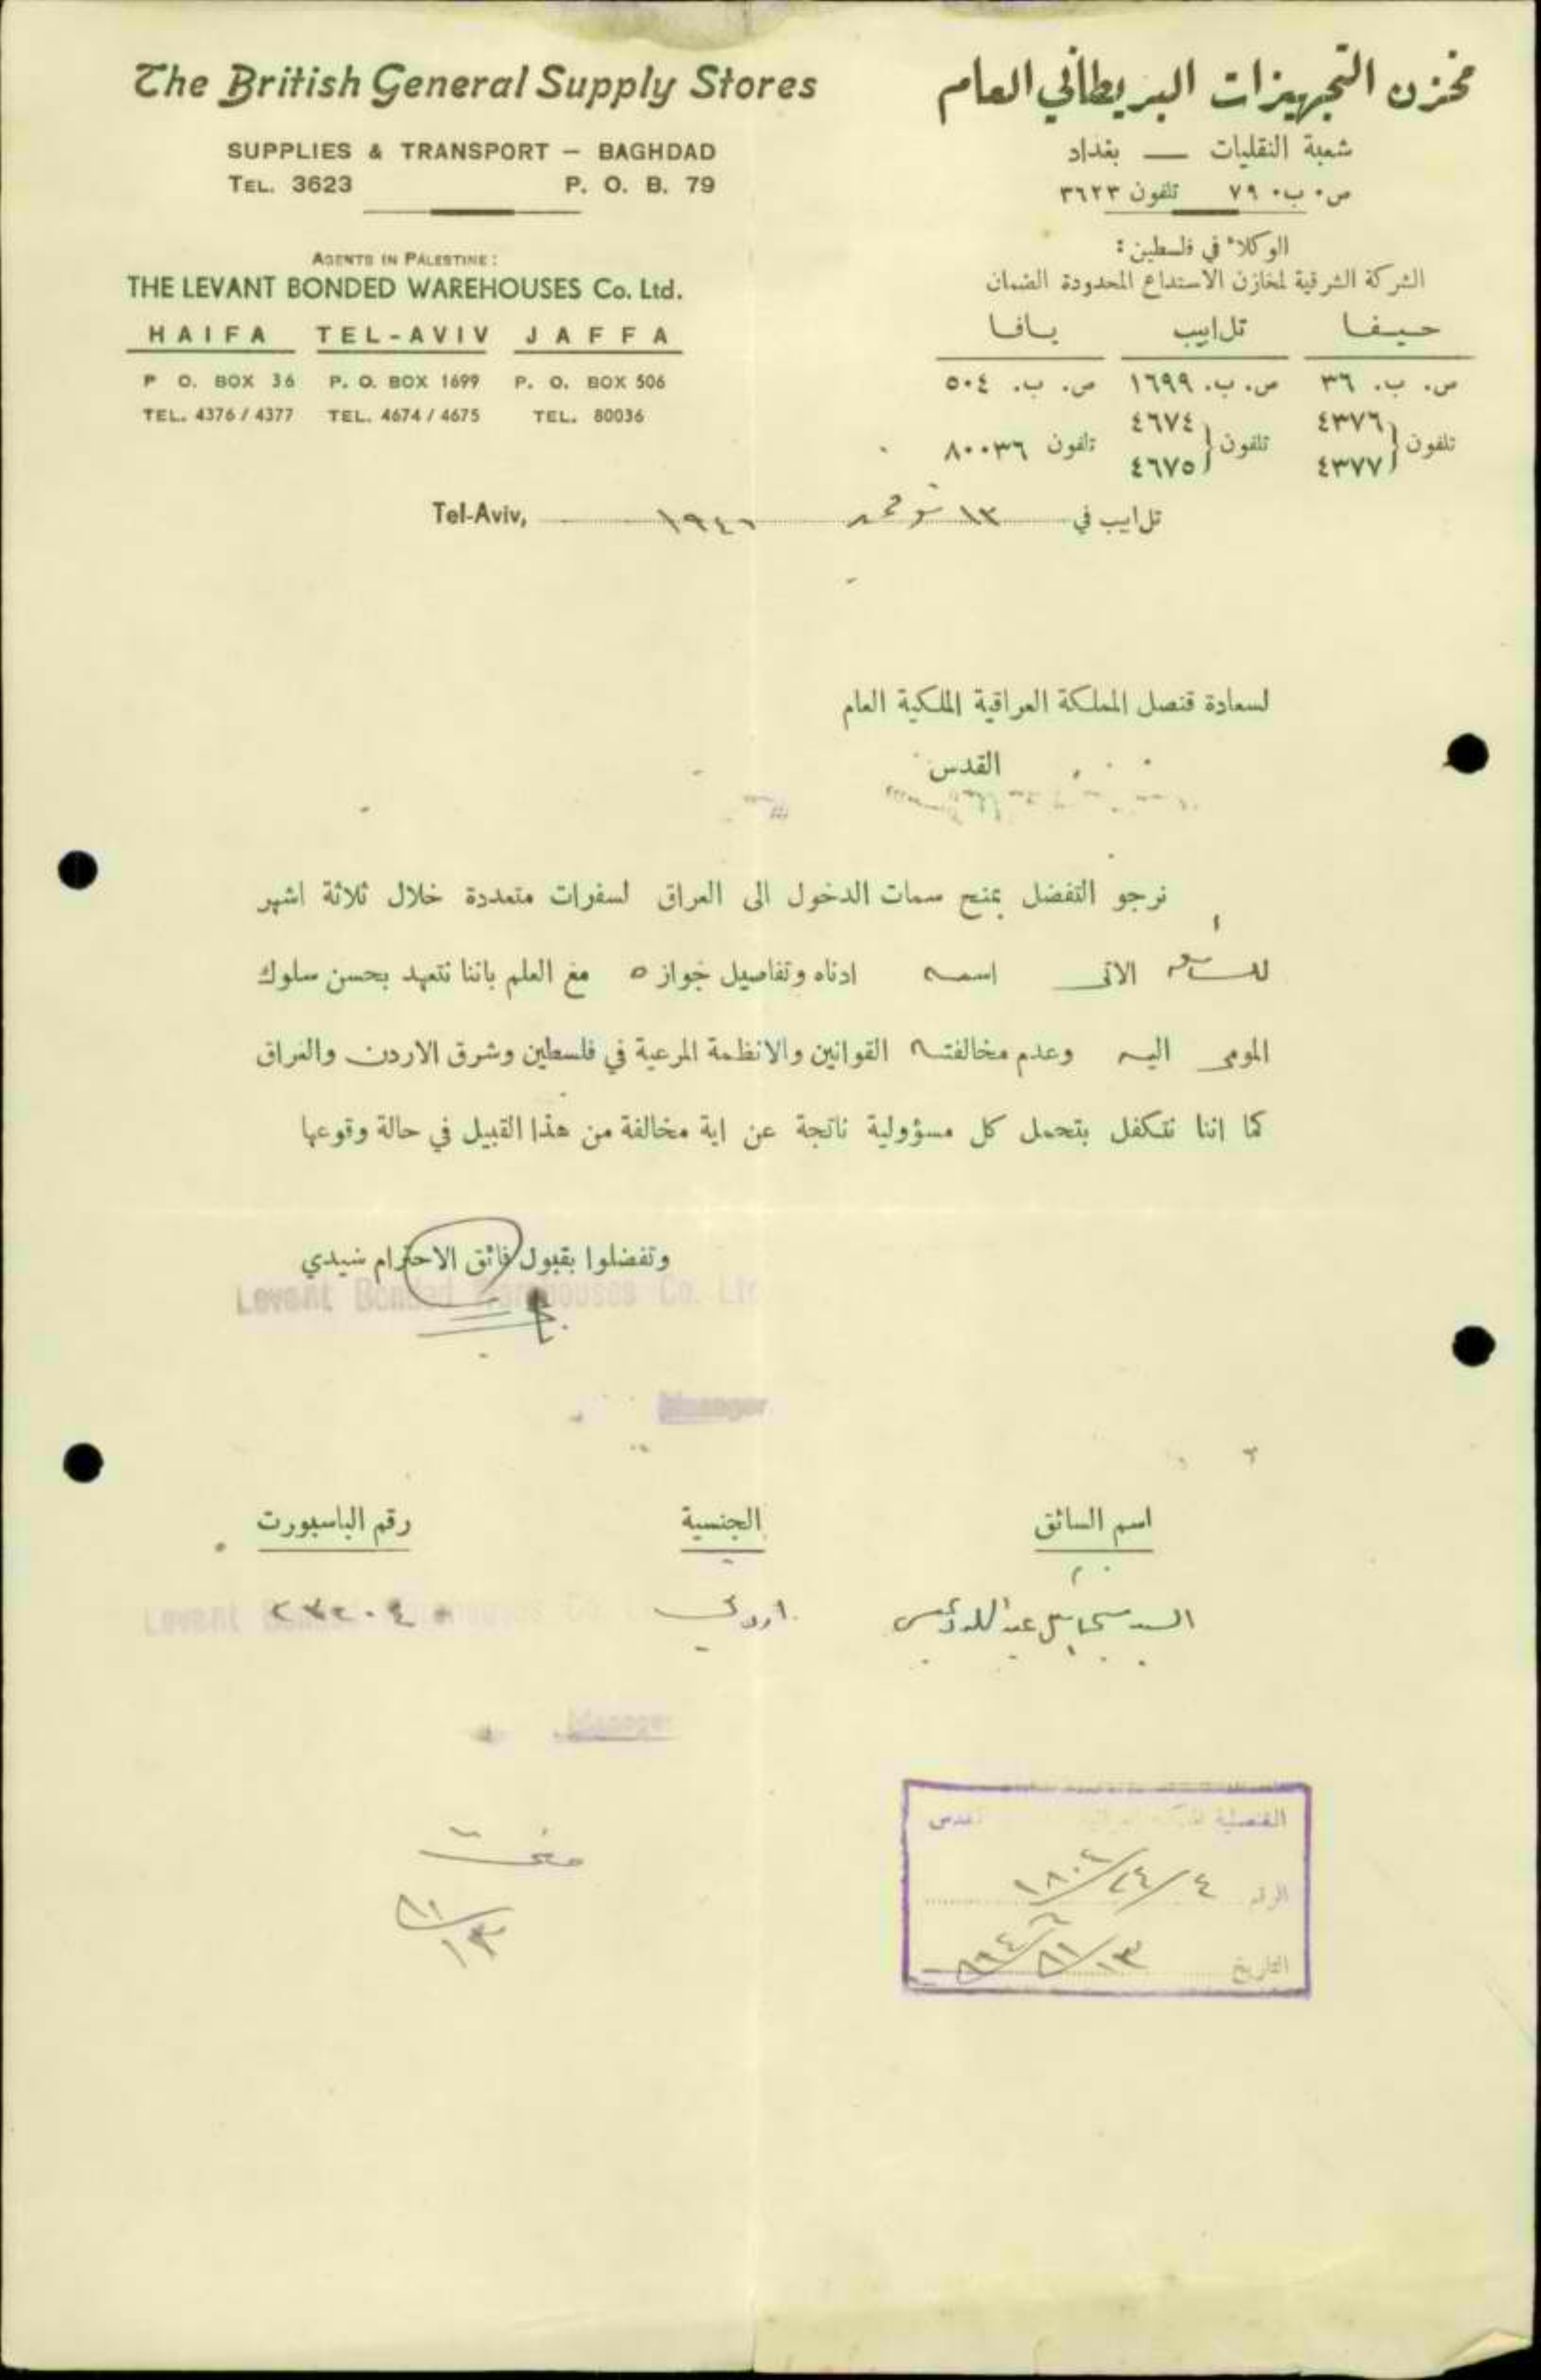 The British General Supply Stores
SUPPLIES & TRANSPORT — BAGHDAD
TEL. 3623 P. O. B. 79
AGENTS IN PALESTINE:
THE LEVANT BONDED WAREHOUSES Co. Ltd.
HAIFA TEL-AVIV JAFFA
P O. BOX 36 P. O. BOX 1699 P. O. BOX 506
TEL. 4376 / 4377 TEL. 4674 / 4675 TEL. 80036
مخزن التجهيزات البريطاني العام
شعبة النقليات — بغداد
ص. ب. ٧٩ تلفون ٣٦٢٣
الوكلاء في فلسطين:
الشركة الشرقية لمخازن الاستداع المحدودة الضمان
حيفا تل ابيب يافا
ص. ب. ٣٦ ص. ب. ١٦٩٩ ص. ب. ٥٠٤
تلفون ٤٣٧٦ ٤٣٧٧ تلفون ٤٦٧٤ ٤٦٧٥ تلفون ٨٠٠٣٦
تل ابيب في ١٣ نوفمبر ١٩٤٦ Tel-Aviv,
لسعادة قنصل المملكة العراقية الملكية العام
القدس
نرجو التفضل بمنح سمات الدخول الى العراق لسفرات متعددة خلال ثلاثة اشهر
للسائق الاتى اسمه ادناه وتفاصيل جوازه مع العلم باننا نتعهد بحسن سلوك
المومى اليه وعدم مخالفته القوانين والانظمة المرعية في فلسطين وشرق الاردن والعراق
كما اننا نتكفل بتحمل كل مسؤولية ناتجة عن اية مخالفة من هذا القبيل في حالة وقوعها
وتفضلوا بقبول فائق الاحترام سيدي
Levant Bonded Warehouses Co. Ltd
Manager
اسم السائق الجنسية رقم الباسبورت
السيد عبد الله اردني
Levant Bonded Warehouses Co.
Manager
منحت
القنصلية القدس
الرقم ٤/٢٤/١٨٠٦
التاريخ